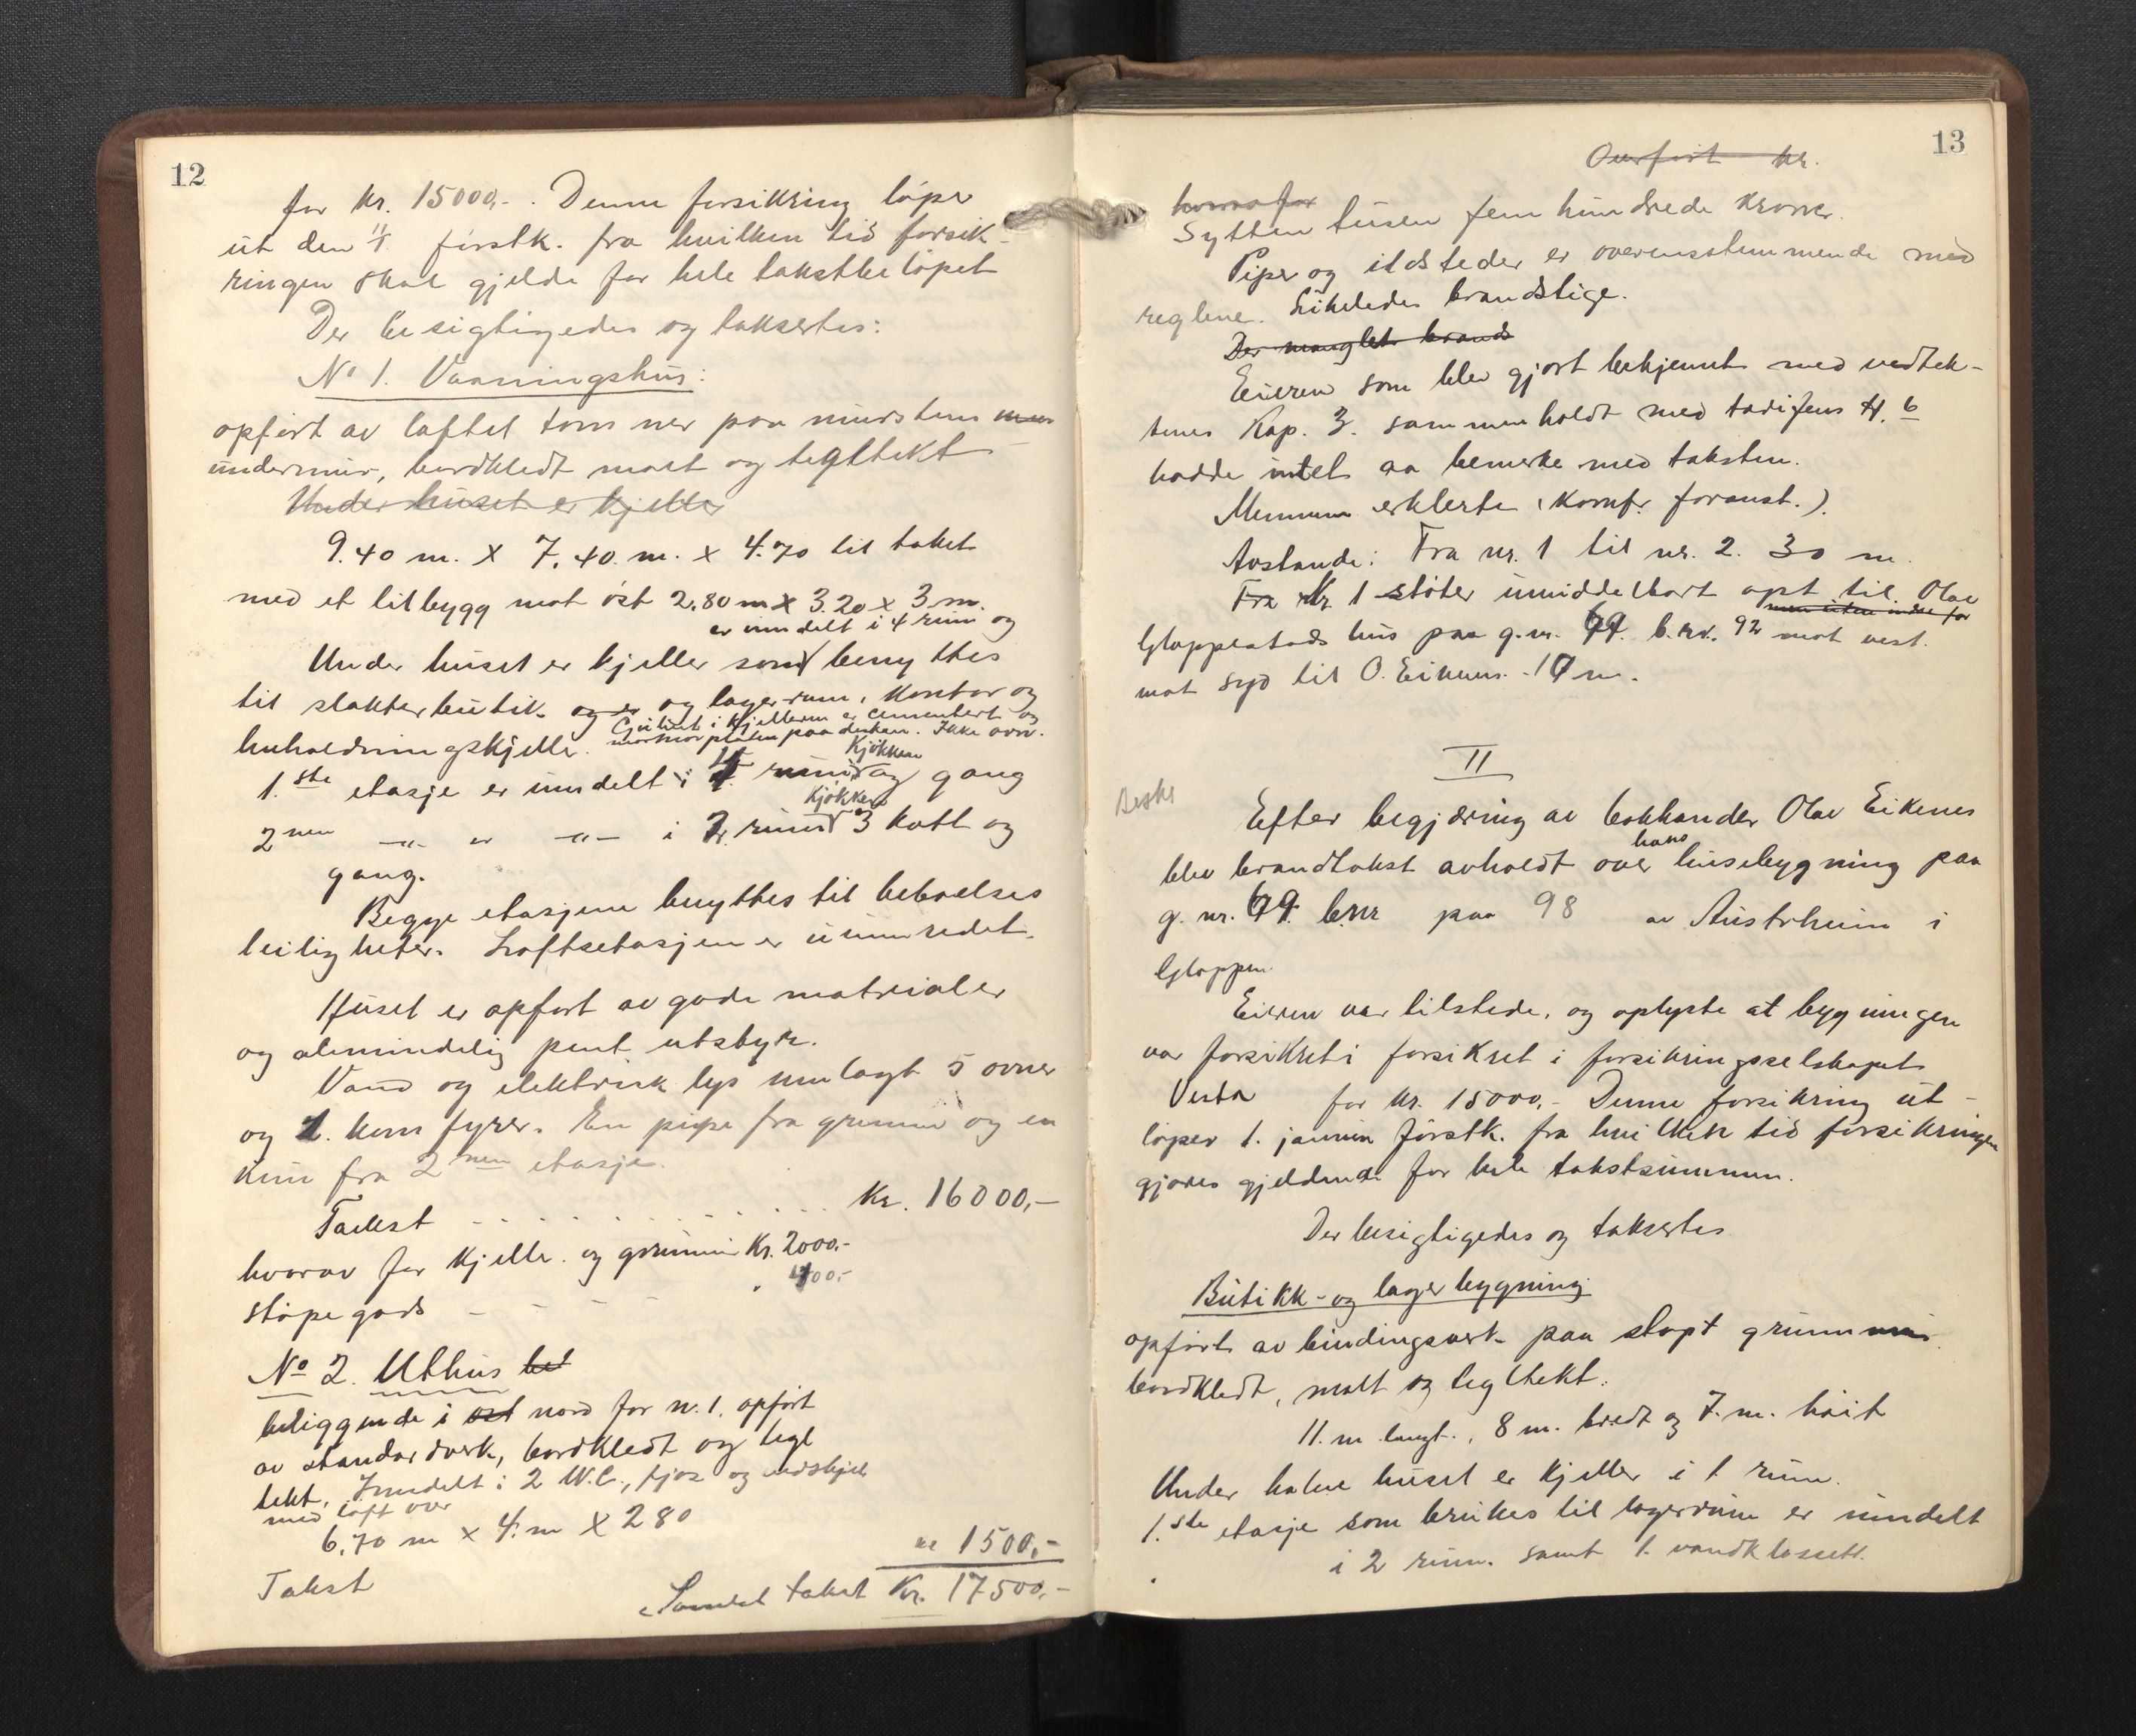 12
for kr. 15000,-. Denne forsikring löper
ut den 1/1 förstk. fra hvilken tid forsik-
ringen skal gjelde for hele takstbelöpet
Der besigtigedes og taksertes:
No 1. Vaaningshus:
opfört av laftet tömmer paa murstens mur
undermur, bordkledt malt og tegltekt
Under huset er kjeller
9.40 m. x 7.40 m. x 4.70 til taket
med et tilbygg mot öst 2.80 m x 3.20 x 3 m.
er inndelt i 4 rum og
Under huset er kjeller som benyttes
til slakterbutik og er og lagerrum, kontor og
Gulvet i kjelleren er cementert og
huholdningskjeller. marmorplater paa disken. Ikke ovn.
Kjökken
1.ste etasje er inndelt i 4 rum og gang
Kjökken
2nen -"- er -"- i 2 rum 3 kott og
gang.
Begge etasjene benyttes til beboelses
leiligheter. Loftsetasjen er uinnredet.
Huset er opfört av gode materialer
og alemindelig pent utstyr.
Vand og elektrisk lys innlagt 5 ovner
og 2. komfyrer. En pipe fra grunnen og en
kun fra 2nen etasje.
Takst . . . . . . . . Kr. 16000,-
hvorav for kjeller og grunnmur Kr. 2000.-
støpegods - - - " 400.-
No 2. Uthus bel
beliggende i öst nord for nr. 1. opfört
av standardverk, bordkledt og tegl
tekt. Inndelt i 2 W.C., fjös og vedskjul
med loft over
6,70 m x 4. m x 280
Takst kr 1500,-
Samlet takst Kr. 17500,-
13
Overfört kr.
hvorav for
Sytten tusen fem hundrede kroner.
Piper og ildsteder er overensstemmende med
reglene. Likeledes brandstige.
Der manglet brands
Eieren som blev gjort bekjennt med vedtek-
tenes Kap. 3. sammenholdt med tarifens H. 6
hadde intet aa bemerke med taksten.
Mennene erklerte (komfr. foranst.).
Avstande: Fra nr. 1 til nr. 2. 30 m.
Fra Nr 1 støter umiddelbart opt til Olav
men uten indre for
Gloppestads hus paa g.nr. 69. b.nr. 92 mot vest.
mot syd til O. Eikenes. 10 m.
II
Efter begjæring av bokhandler Olav Eikenes
hans
blev brandtakst avholdt over husebygning paa
g. nr. 69. bnr paa 98 av Austrheim i
Gloppen.
Eieren var tilstede, og oplyste at bygningen
var forsikret i forsikret i forsikringsselskapet
Vesta for kr. 15000,- Denne forsikring ut-
löper 1. januar förstk. fra hvilken tid forsikringen
gjöres gjeldende for hele takstsummen.
Der besigtigedes og taksertes
Butikk- og lagerbygning
opfört av bindingsverk paa støpt grunnmur
bordkledt, malt og tegltekt.
11. m langt., 8 m. bredt og 7. m. höit
Under halve huset er kjeller i 1 rum.
1.ste etasje som brukes til lagerrum er inndelt
i 2 rum. samt 1. vandklossett.